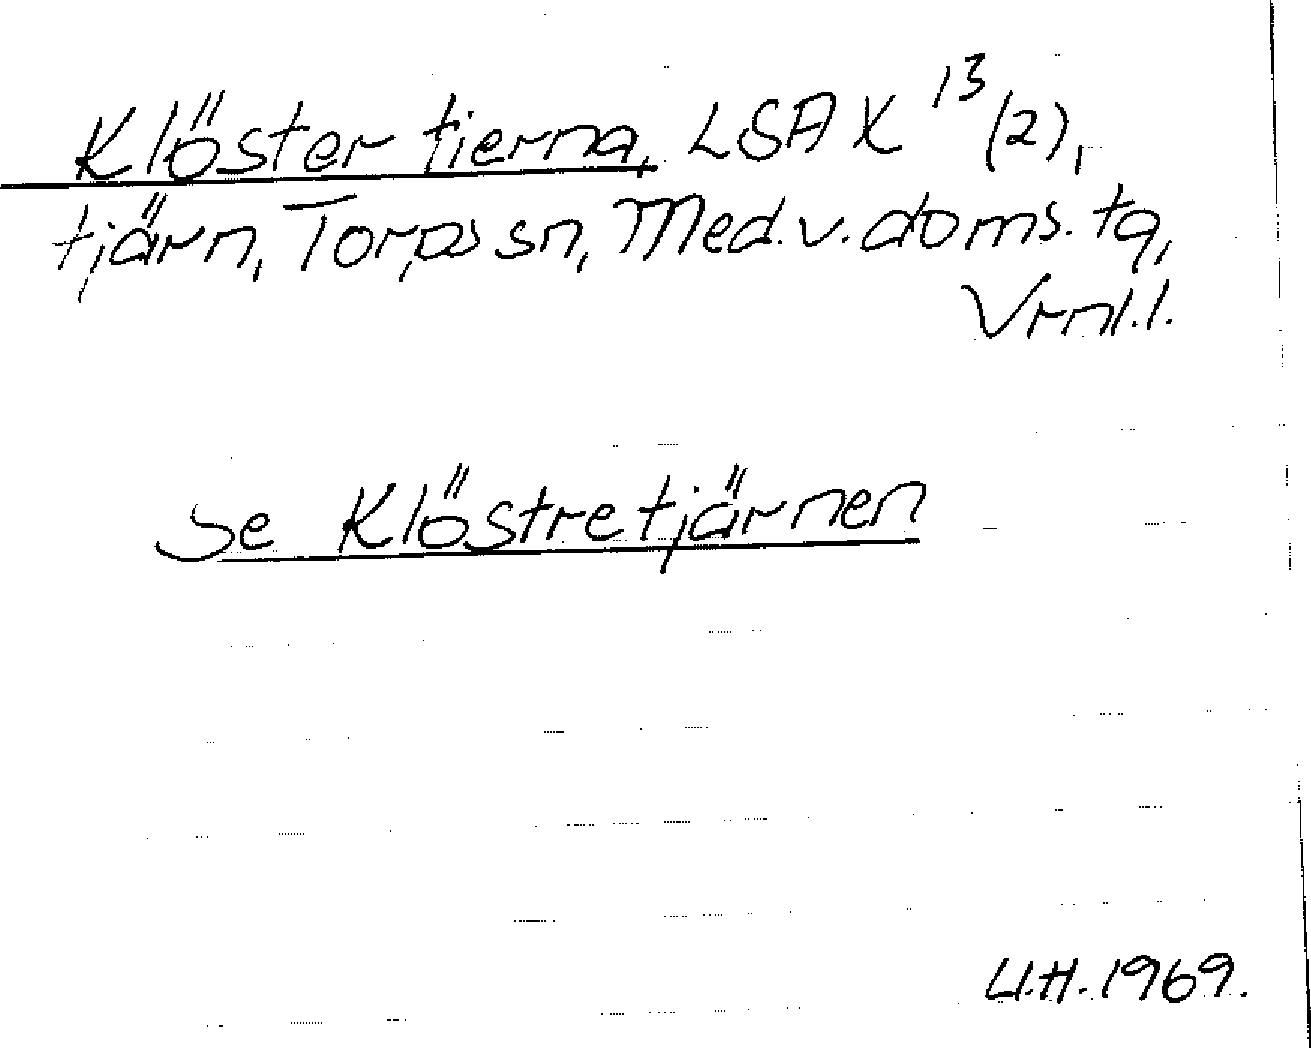 Klöster tierna, LSA X 13 (2),
tjärn, Torps sn, Med.v.doms. tg,
Vrnl.l.
se Klöstretjärnen
U.H. 1969.